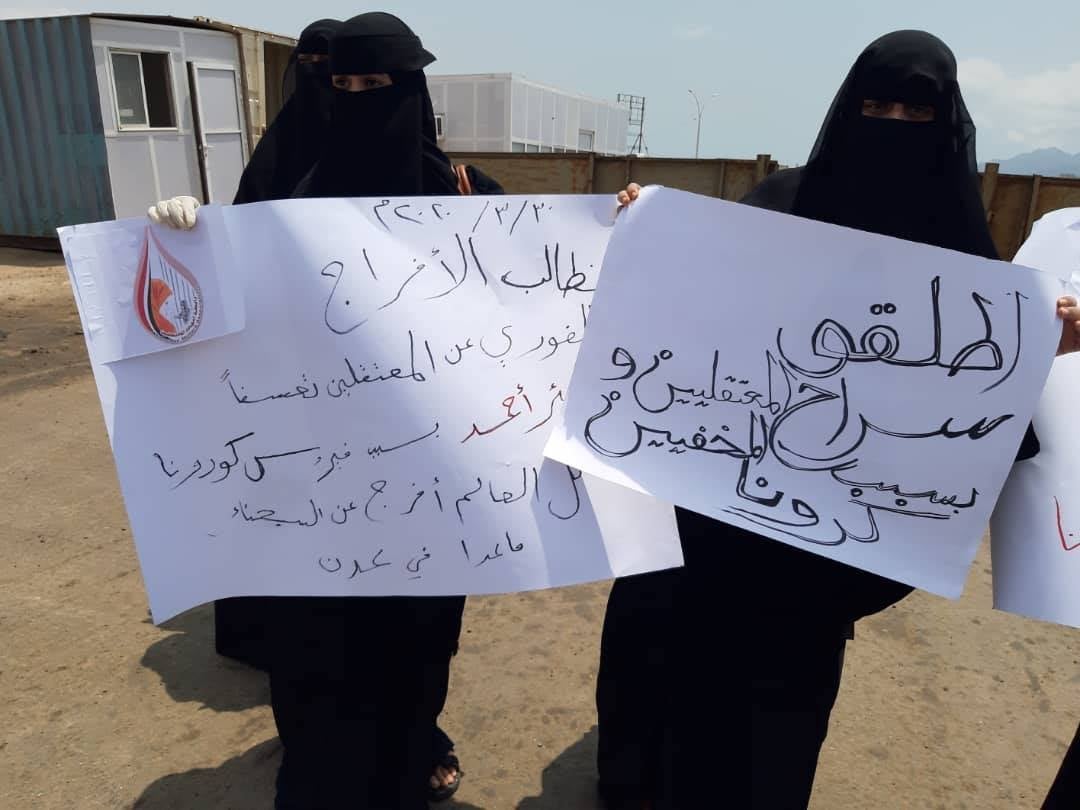 ٢٠٢٠/٣/٣٠م
نطالب الأفراج
الفوري عن المعتقلين تعسفاً
أحمد بسبب فيروس كورونا
كل العالم أفرج عن السجناء
ماعدا في عدن
اطلقو
سراح المعتقلين و
المخفيين
بسبب
كرونا
نا